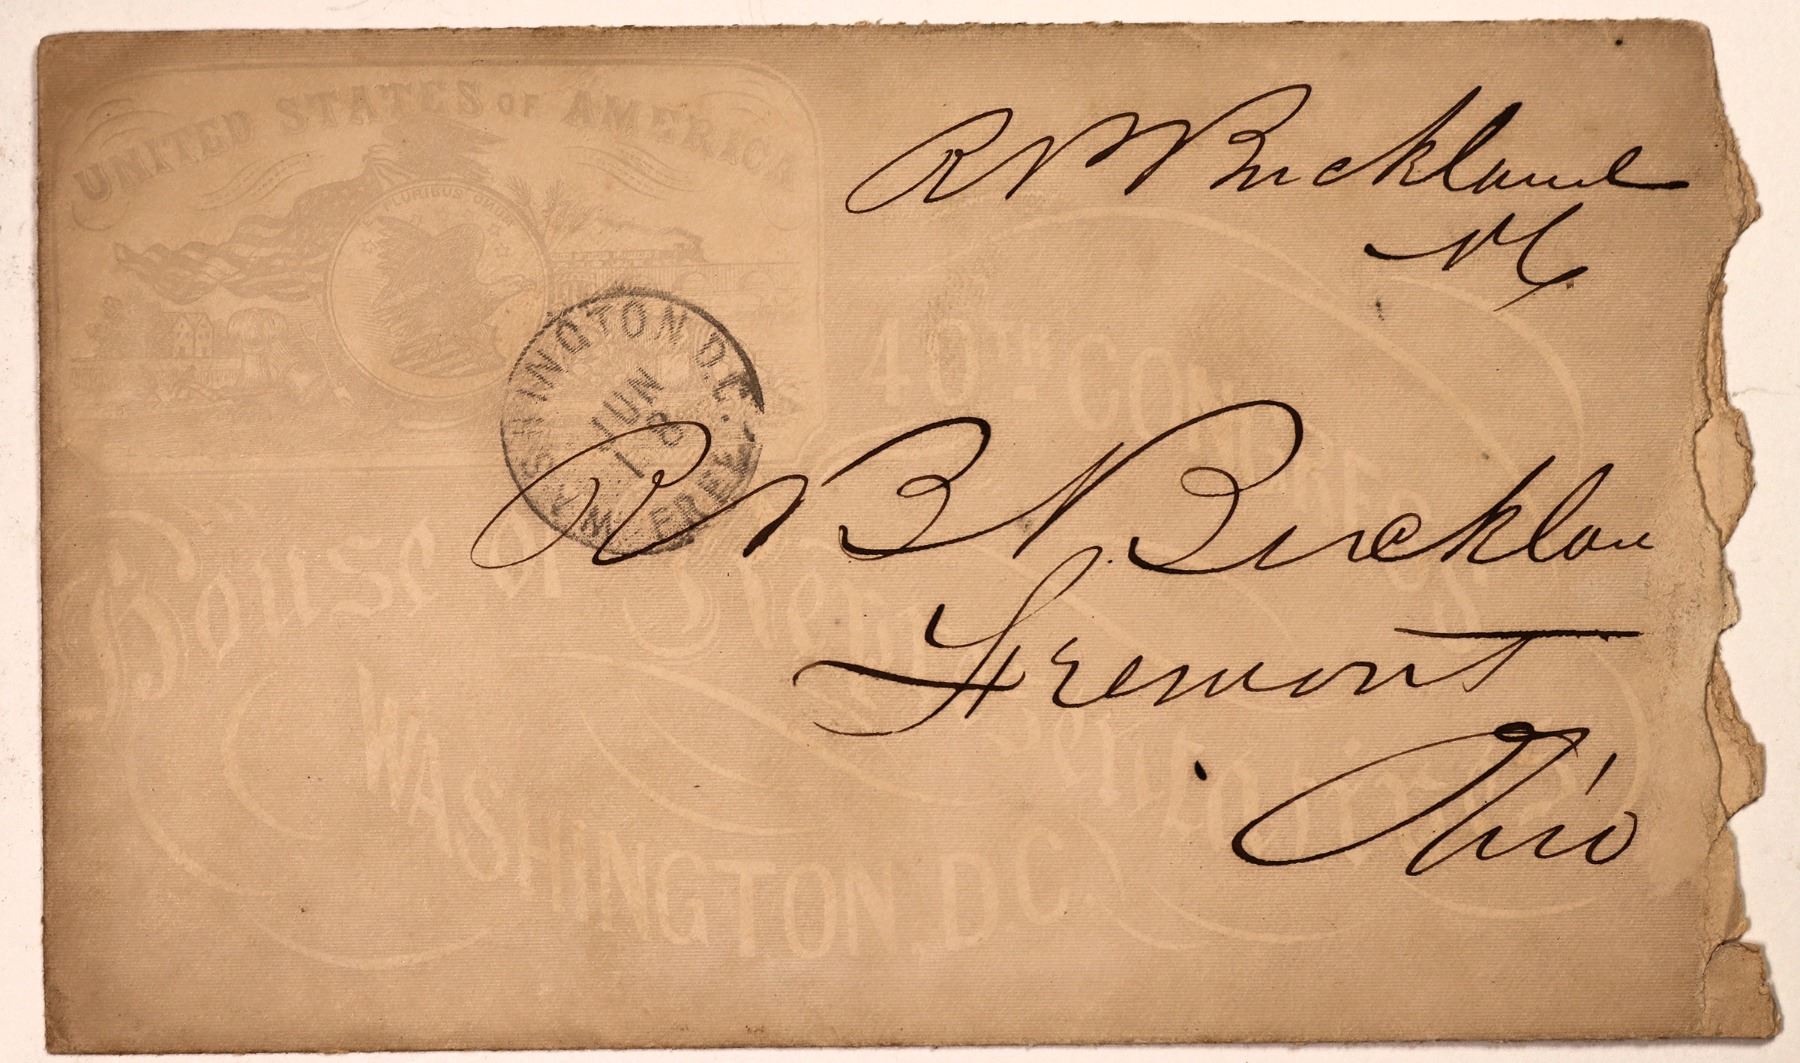 UNITED STATES OF AMERICA
PLURIBUS
R P Buckland
M C
40TH CONGRESS
WASHINGTON, D.C.
JUN
18
FREE
R B Bucklan
Fremont
Ohio
House of Representatives
WASHINGTON, D.C.